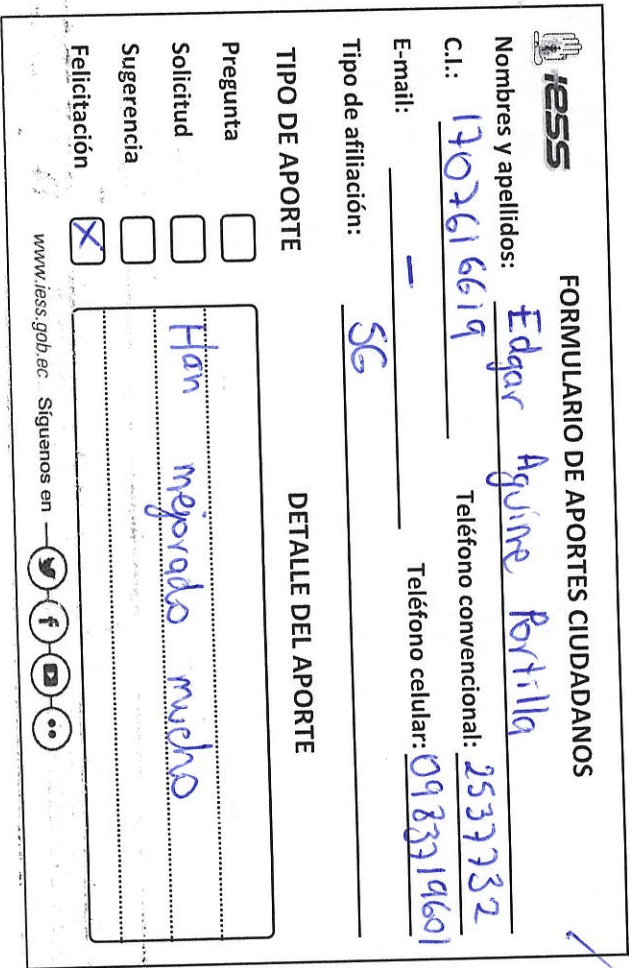 iess
FORMULARIO DE APORTES CIUDADANOS
Nombres y apellidos: Edgar Aguirre Portilla
C.I.: 1707616619 Teléfono convencional: 2537732
E-mail: — Teléfono celular: 0983719601
Tipo de afiliación: SG
TIPO DE APORTE
Pregunta
Solicitud
Sugerencia
Felicitación X
DETALLE DEL APORTE
Han mejorado mucho
www.iess.gob.ec Síguenos en